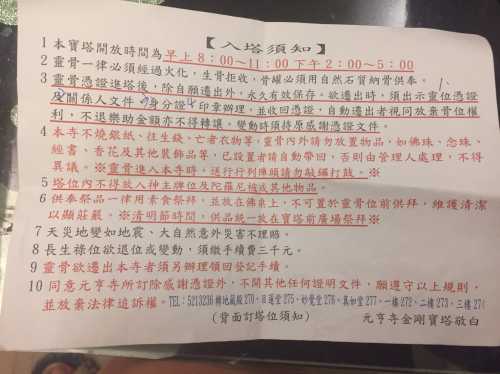 【入塔須知】
1 本寶塔開放時間為早上8:00~11:00下午2:00~5:00
2 靈骨一律必須經過火化，生骨拒收，骨罐必須用自然石質納骨供奉。
3 靈骨憑證進塔後，除自願遷出外，永久有效保存，欲遷出時，須出示靈位憑證
及關係人文件，身分證，印章辦理，並收回憑證，自動遷出者視同放棄骨位權
利，不退樂助金額亦不得轉讓。變動時須持原感謝憑證文件。
4 本寺不燒銀紙、往生錢、亡者衣物等，靈骨內外請勿放置物品，如佛珠、念珠、
經書、香花及其他裝飾品等，已設置者請自動帶回，否則由管理人處理，不得
異議。※靈骨進入本寺時，送行行列陣頭請勿敲鑼打鼓。※
5 塔位內不得放入神主牌位及陀羅尼被或其他物品。
6 供奉祭品一律用素食祭拜，並放在佛桌上，不可置於靈骨位前供拜，維護清潔
以顯莊嚴。※清明節時間，供品統一放在寶塔前廣場祭拜※
7 天災地變如地震、大自然意外災害不理賠。
8 長生祿位欲退位或變動，須繳手續費三千元。
9 靈骨欲遷出本寺者須另辦理領回登記手續。
10 同意元亨寺所訂除感謝憑證外，不開其他任何證明文件，願遵守以上規則，
並放棄法律追訴權。TEL:5213236轉地藏殿270、日蓮堂275、妙覺堂276、真如堂277、一樓272、二樓273、三樓274
(背面訂塔位須知) 元亨寺金剛寶塔敬白